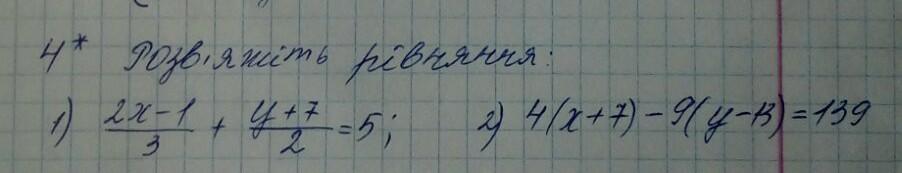 4* Розв'яжіть рівняння:
1) (2x-1)/3 + (y+7)/2 = 5; 2) 4(x+7)-9(y-13)=139